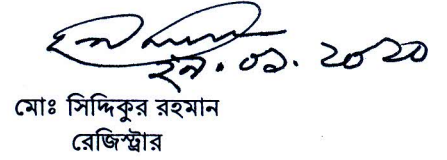 ২৯.০১.২০২০
মোঃ সিদ্দিকুর রহমান
রেজিস্ট্রার